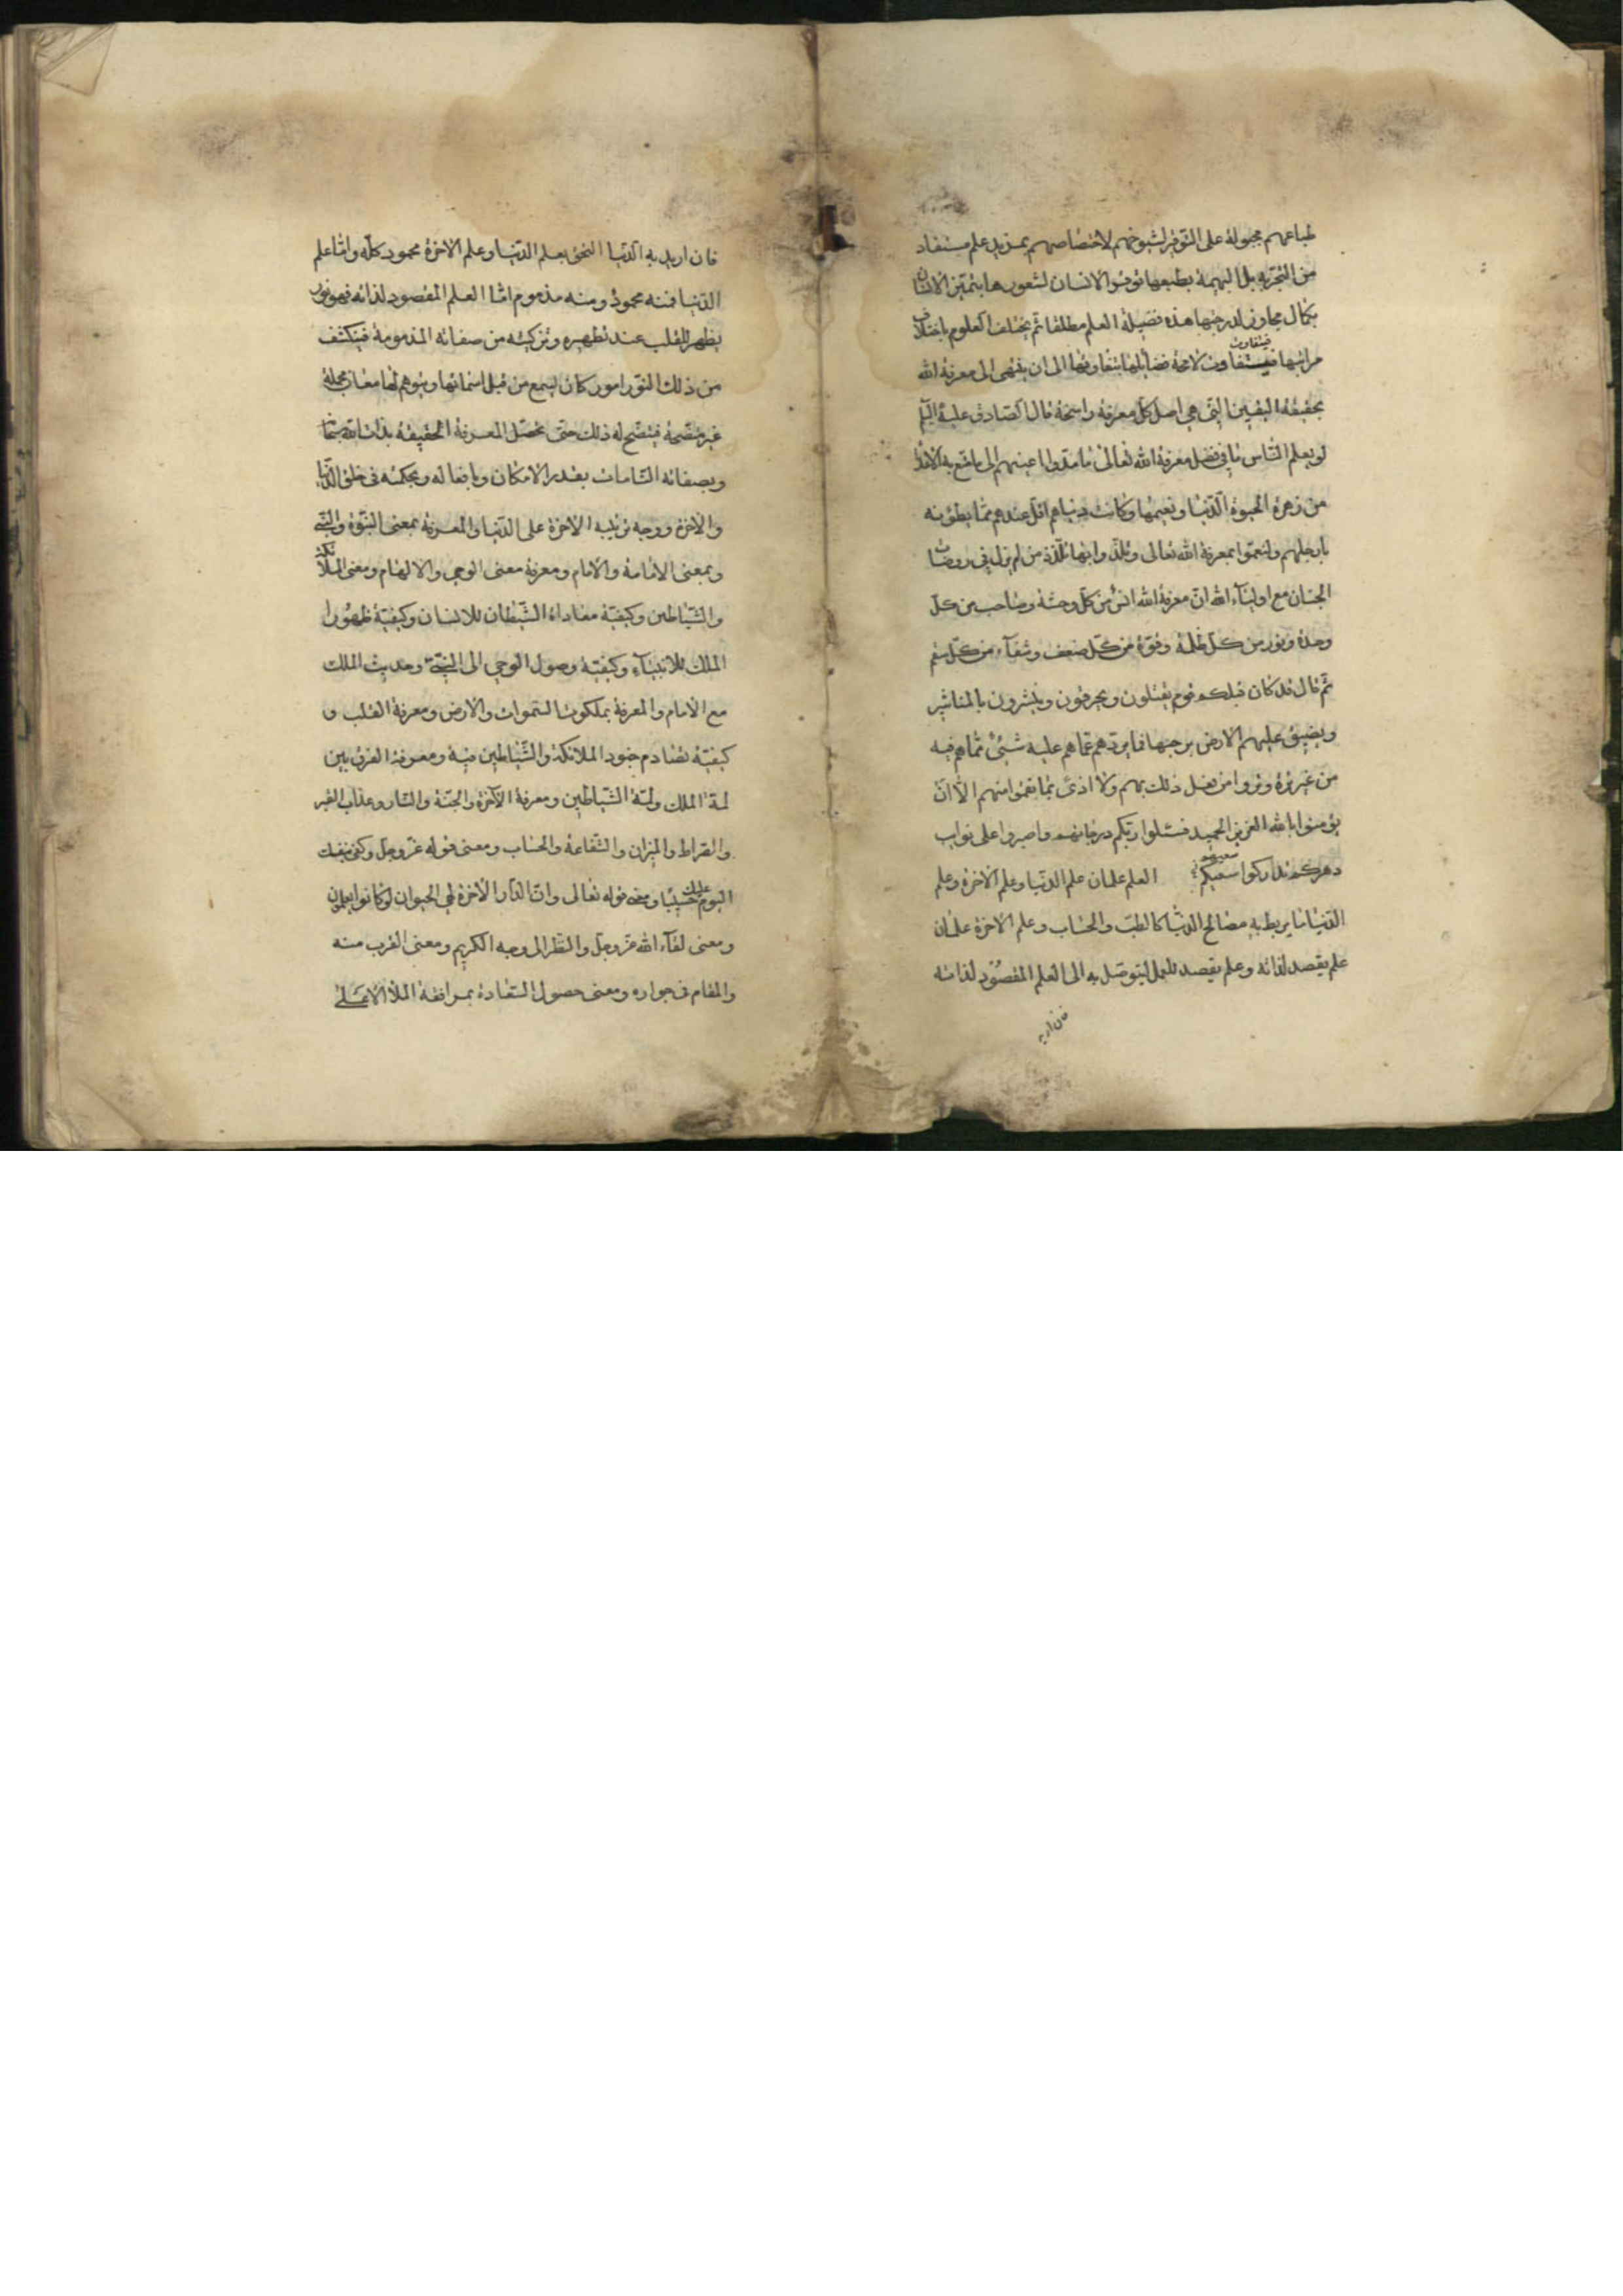 طباعهم مجبولة على التوقير لشيوخهم لاختصاصهم بمزيد علم مستفاد
من التجربة بل البهيمة بطبعها توقر الانسان لشعورها بتميّز الانسان
بكمال مجاوز لدرجتها هذه فضيلة العلم مطلقا ثم يختلف العلوم باختلاف
مراتبها فيتفاوت لا محة فضائلها بتفاوتها الى ان ينتهى الى معرفة الله
بحقيقة اليقين التى هى اصل كل معرفة راسخة قال الصادق عليه السلام
لو يعلم الناس ما فى فضل معرفة الله تعالى ما مدوا اعينهم الى ما متع به الاعداء
من زهرة الحيوة الدنيا ونعيمها وكانت دنياهم اقل عندهم مما يطؤنه
بارجلهم ولنعموا بمعرفة الله تعالى وتلذذوا بها تلذذ من لم يزل فى روضات
الجنان مع اولياء الله ان معرفة الله انس من كل وحشة وصاحب من كل
وحدة ونور من كل ظلمة وقوة من كل ضعف وشفاء من كل سقم
ثم قال قد كان قبلكم قوم يقتلون ويحرقون وينشرون بالمناشير
ويضيق عليهم الارض برحبها فما يردهم عما هم عليه شىء مما هم فيه
من غير ترة وتروا من فعل ذلك بهم ولا اذى بما نقموا منهم الا ان
يؤمنوا بالله العزيز الحميد فسئلوا ربكم درجاتهم واصبروا على نوايب
دهركم تدركوا سعيهم العلم علمان علم الدنيا وعلم الاخرة وعلم
الدنيا ما يربط به مصالح الدنيا كالطب والحساب وعلم الاخرة علمان
علم يقصد لذاته وعلم يقصد للعمل ليتوصل به الى العلم المقصود لذاته
فان اريد
فان اريد به الدنيا التحق بعلم الدنيا وعلم الاخرة محمود كله واما علم
الدنيا فمنه محمود ومنه مذموم اما العلم المقصود لذاته فهو نور
يظهر للقلب عند تطهيره وتزكيته من صفاته المذمومة فينكشف
من ذلك النور امور كان يسمع من قبل اسمائها ويتوهم لها معان مجملة
غير متضحة فيتضح له ذلك حتى تحصل المعرفة الحقيقة بذات الله سبحانه
وبصفاته التامات بقدر الامكان وبافعاله وبحكمته فى خلق الدنيا
والاخرة ووجه ترتيبه الاخرة على الدنيا والمعرفة بمعنى النبوة والنبى
وبمعنى الامامة والامام ومعرفة معنى الوحى والالهام ومعنى الملائكة
والشياطين وكيفية معاداة الشيطان للانسان وكيفية ظهور
الملك للانبياء وكيفية وصول الوحى الى النبى وحديث الملك
مع الامام والمعرفة بملكوت السموات والارض ومعرفة القلب و
كيفية تصادم جنود الملائكة والشياطين فيه ومعرفة الفرق بين
لمة الملك ولمة الشياطين ومعرفة الاخرة والجنة والنار وعذاب القبر
والصراط والميزان والشفاعة والحساب ومعنى قوله عز وجل وكفى بنفسك
اليوم عليك حسيبا ومعنى قوله تعالى وان الدار الاخرة لهى الحيوان لو كانوا يعلمون
ومعنى لقاء الله عز وجل والنظر الى وجهه الكريم ومعنى القرب منه
والمقام فى جواره ومعنى حصول السعادة بمرافقة الملأ الاعلى